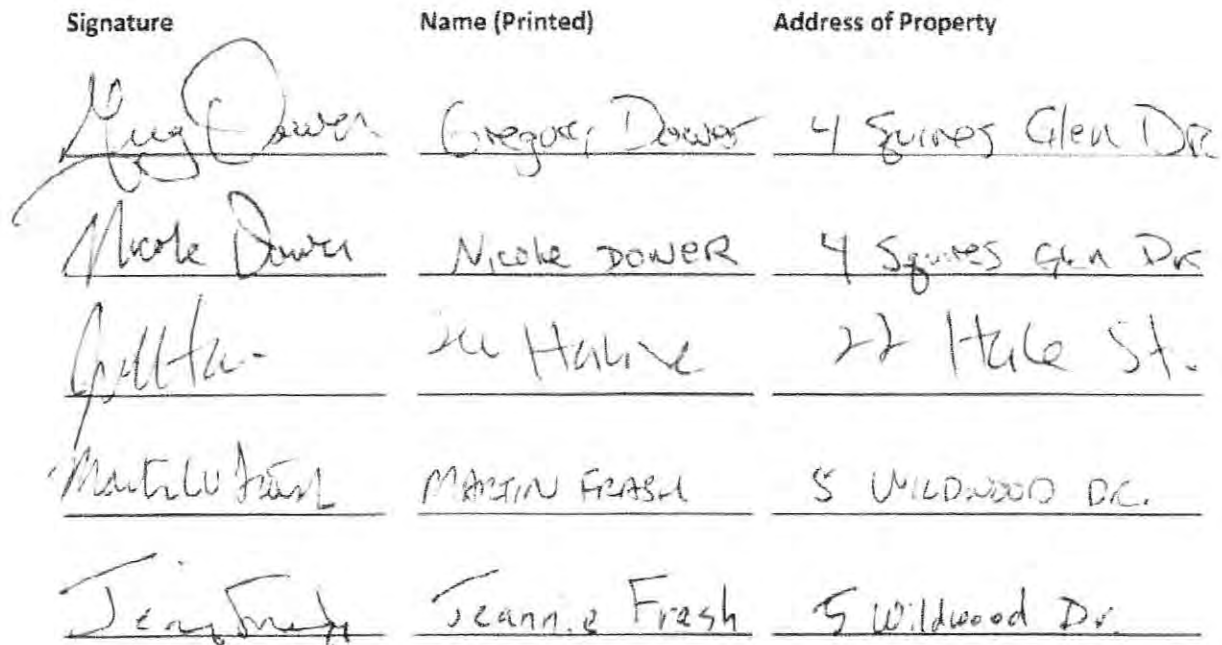 Signature Name (Printed) Address of Property
Greg Dower Gregory Dower 4 Squires Glen Dr
Nicole Dower Nicole DOWER 4 Squires Glen Dr
22 Hale St.
Martin W Frash MARTIN FRASH 5 WILDWOOD DR.
Jeannie Frash 5 Wildwood Dr.